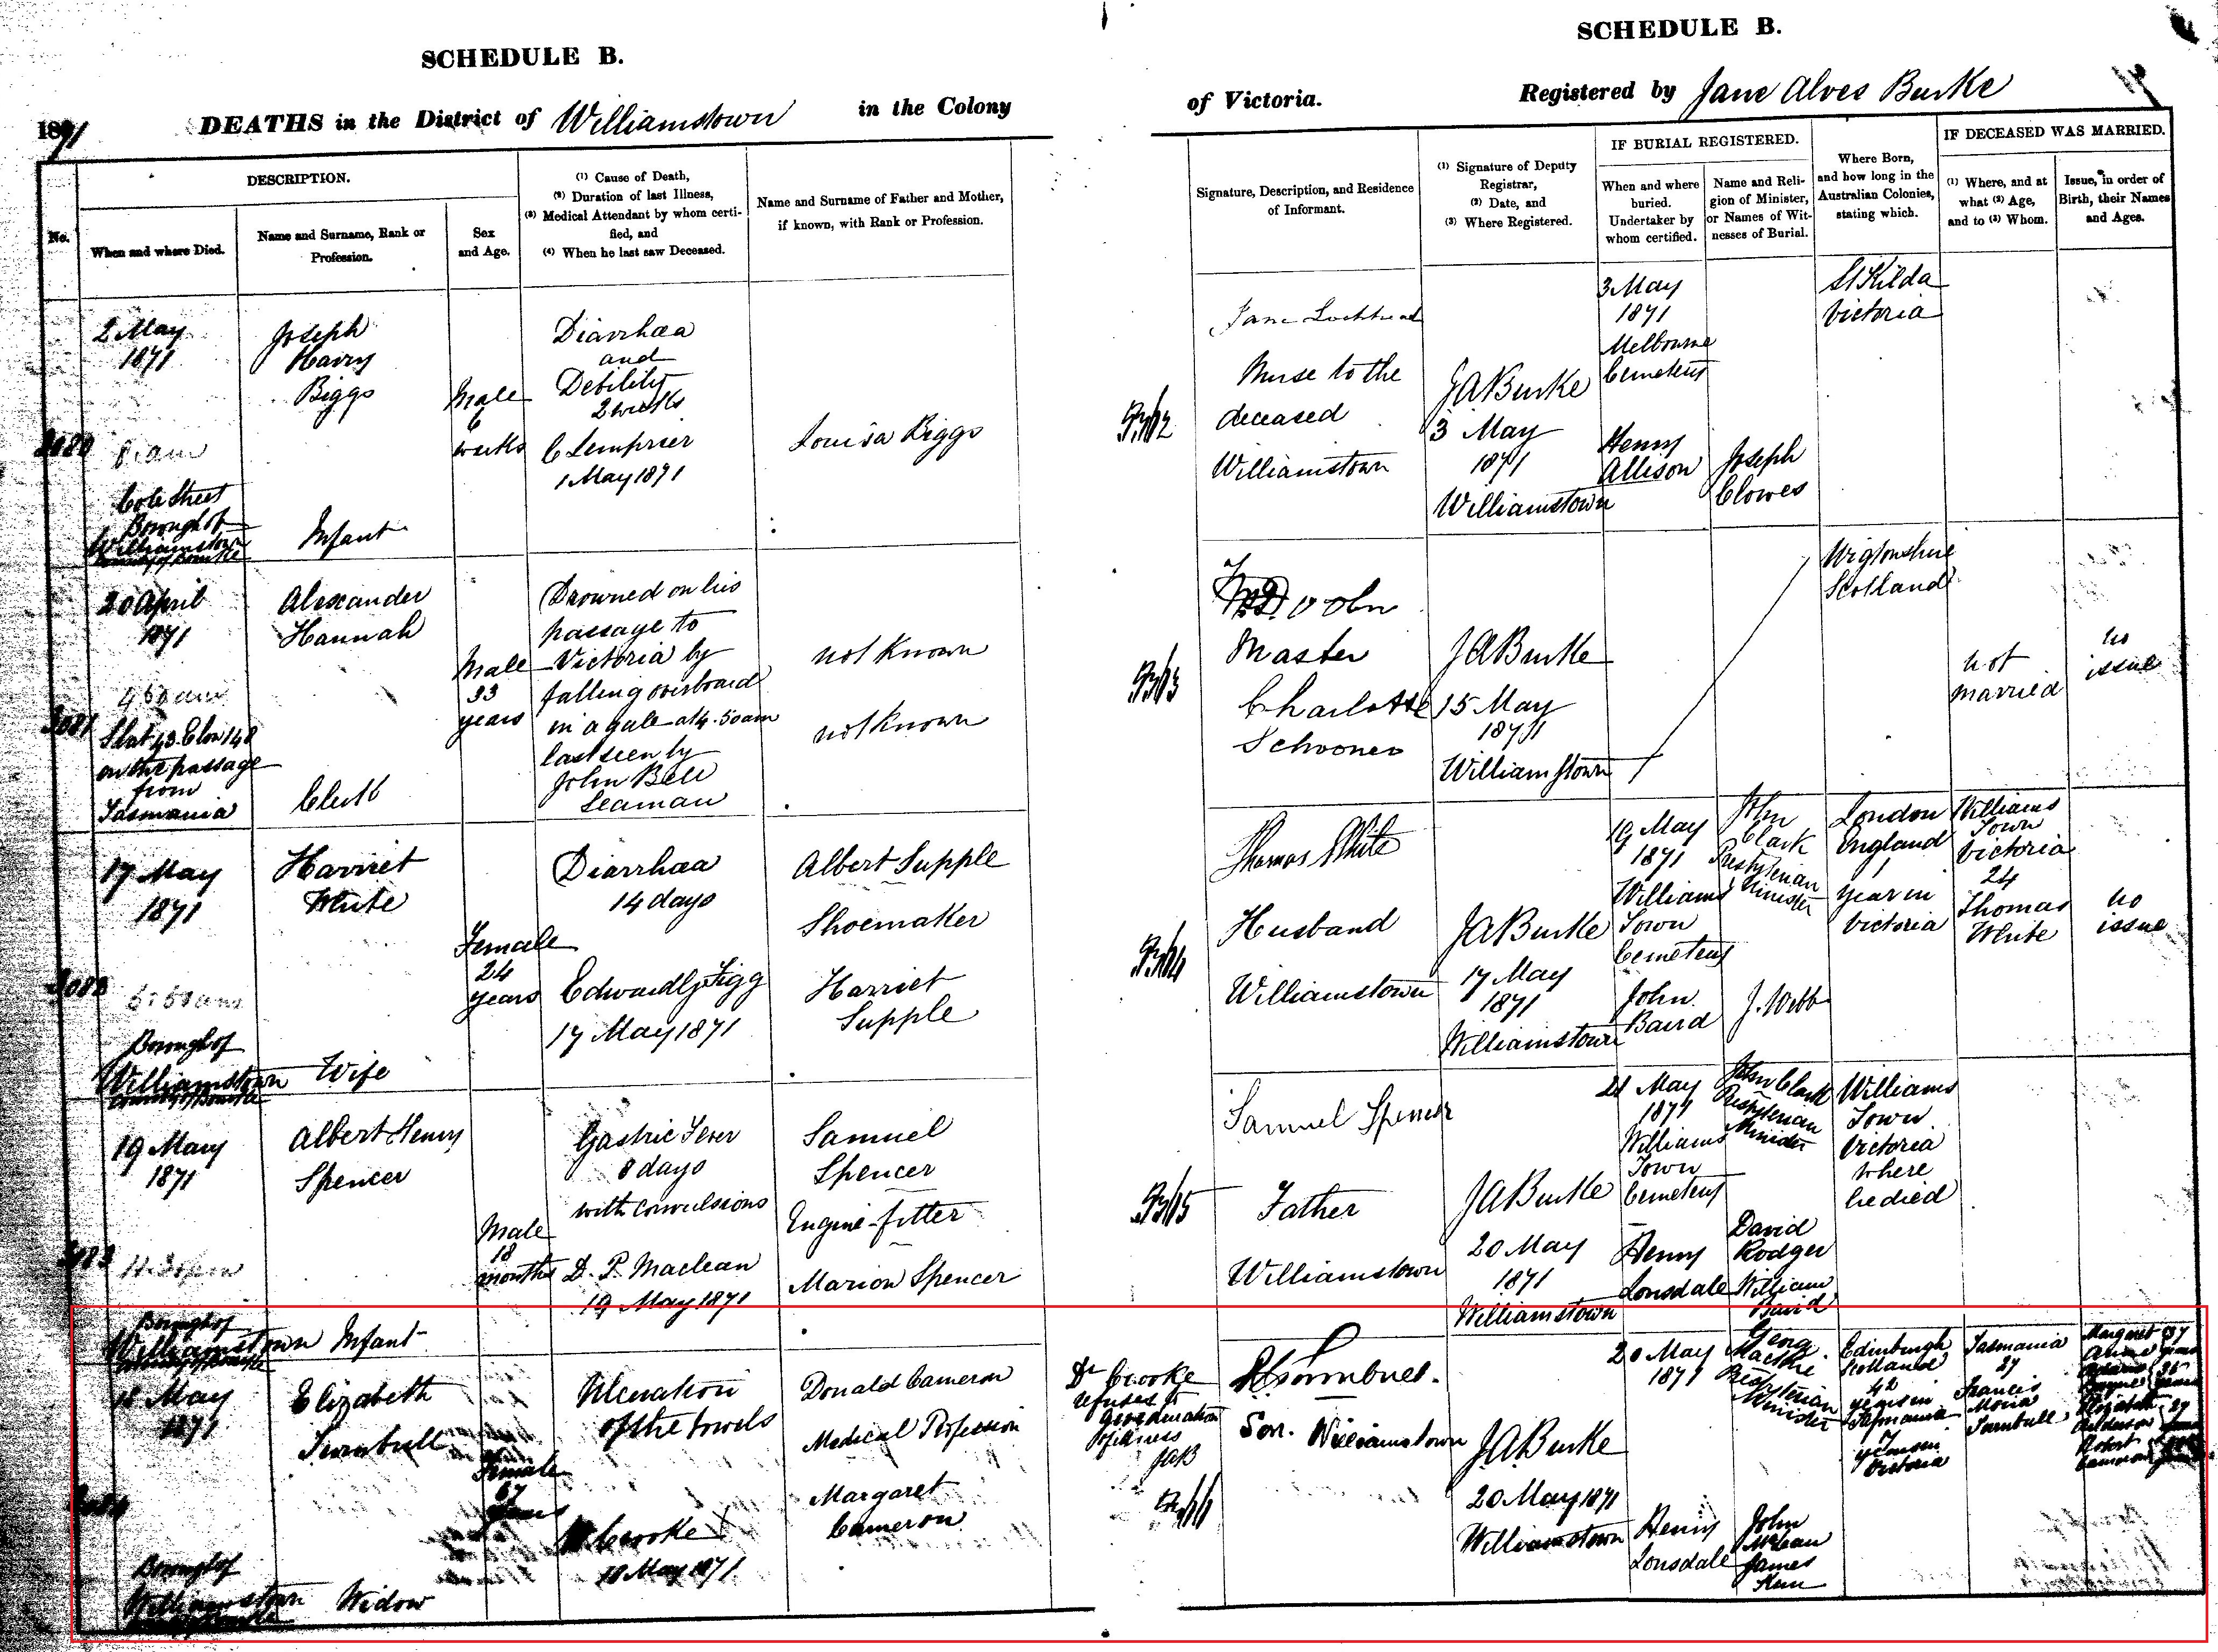 SCHEDULE B.
1871 DEATHS in the District of Williamstown in the Colony
No.
DESCRIPTION.
When and where Died.
Name and Surname, Rank or
Profession.
Sex
and Age.
(1) Cause of Death,
(2) Duration of last Illness,
(3) Medical Attendant by whom certi-
fied, and
(4) When he last saw Deceased.
Name and Surname of Father and Mother,
if known, with Rank or Profession.
2 May
1871
8 am
Cole Street
Borough of
Williamstown
County of Bourke
Joseph
Harry
Biggs
Infant
Male
6
weeks
Diarrhœa
and
Debility
2 weeks
C Lemprier
1 May 1871
Louisa Biggs
20 April
1871
4 50 am
on the passage
from
Tasmania
Alexander
Hannah
Clerk
Male
33
years
Drowned on his
passage to
Victoria by
falling overboard
in a gale at 4.50 am
last seen by
John Bell
Seaman
not known
not known
3082
17 May
1871
5:50 am
Borough of
Williamstown
County of Bourke
Harriet
White
Wife
Female
24
years
Diarrhœa
14 days
17 May 1871
Albert Supple
Shoemaker
Harriet
Supple
3083
19 May
1871
Borough of
Williamstown
County of Bourke
Albert Henry
Spencer
Infant
Male
18
months
Gastric Fever
8 days
with convulsions
D. P. Maclean
19 May 1871
Samuel
Spencer
Engine-fitter
Marion Spencer
3084
18 May
1871
Borough of
Williamstown
County of Bourke
Elizabeth
Turnbull
Widow
Female
67
years
Ulceration
of the bowels
W Crooke
18 May 1871
Donald Cameron
Medical Profession
Margaret
Cameron
SCHEDULE B.
of Victoria. Registered by Jane Alves Burke
Signature, Description, and Residence
of Informant.
(1) Signature of Deputy
Registrar,
(2) Date, and
(3) Where Registered.
IF BURIAL REGISTERED.
When and where
buried.
Undertaker by
whom certified.
Name and Reli-
gion of Minister,
or Names of Wit-
nesses of Burial.
Where Born,
and how long in the
Australian Colonies,
stating which.
IF DECEASED WAS MARRIED.
(1) Where, and at
what (2) Age,
and to (3) Whom.
Issue, in order of
Birth, their Names
and Ages.
Jane Lochhead
Nurse to the
deceased
Williamstown
JABurke
3 May
1871
Williamstown
3 May
1871
Melbourne
Cemetery
Henry
Allison
Joseph
Clowes
St Kilda
Victoria
Master
Charlotte
Schooner
JABurke
15 May
1871
Williamstown
Wigtonshire
Scotland
not
married
no
issue
Thomas White
Husband
Williamstown
JABurke
17 May
1871
Williamstown
19 May
1871
Williams
Town
Cemetery
John
Baird
John
Clark
Presbyterian
Minister
J. Webb
London
England
1
year in
Victoria
Williams
Town
Victoria
24
Thomas
White
no
issue
Samuel Spencer
Father
Williamstown
JABurke
20 May
1871
Williamstown
21 May
1871
Williams
Town
Cemetery
Henry
Lonsdale
John Clark
Presbyterian
Minister
David
Rodger
William
Baird
Williams
Town
Victoria
where
he died
Dr Crooke
refuses to
give duration
of illness
JAB
Turnbull.
Son. Williamstown
JABurke
20 May 1871
Williamstown
20 May
1871
Henry
Lonsdale
Presbyterian
Minister
John
McLean
James
Edinburgh
Scotland
42
years in
Tasmania
7
years in
Victoria
Tasmania
27
Francis
Turnbull
Margaret 37
Elizabeth
Anderson
Robert
Cameron